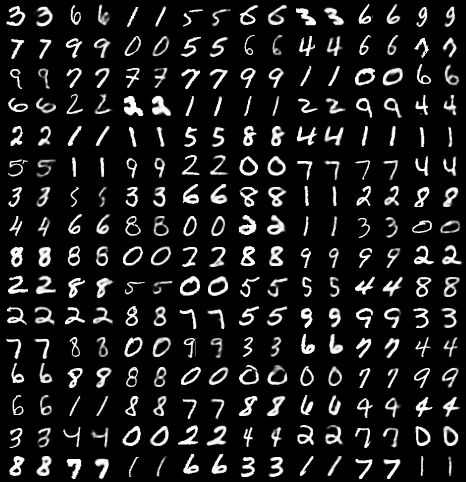 3 3 6 6 1 1 5 5 6 6 3 3 6 6 9 9
7 7 9 9 0 0 5 5 6 6 4 4 6 6 7 7
9 9 7 7 7 7 7 7 9 9 1 1 0 0 6 6
6 6 2 2 2 2 1 1 1 1 2 2 9 9 4 4
2 2 1 1 1 1 5 5 8 8 4 4 1 1 1 1
5 5 1 1 9 9 2 2 0 0 7 7 7 7 4 4
3 3 5 5 3 3 6 6 8 8 1 1 2 2 8 8
4 4 6 6 8 8 0 0 2 2 1 1 3 3 0 0
8 8 8 8 0 0 2 2 8 8 9 9 9 9 2 2
2 2 8 8 5 5 0 0 5 5 5 5 4 4 8 8
2 2 2 2 8 8 7 7 5 5 9 9 9 9 3 3
7 7 8 8 0 0 9 9 3 3 6 6 7 7 4 4
6 6 8 8 8 8 0 0 0 0 0 0 7 7 9 9
6 6 1 1 8 8 7 7 8 8 6 6 9 9 4 4
3 3 4 4 0 0 2 2 4 4 2 2 7 7 0 0
8 8 7 7 1 1 6 6 3 3 1 1 7 7 1 1